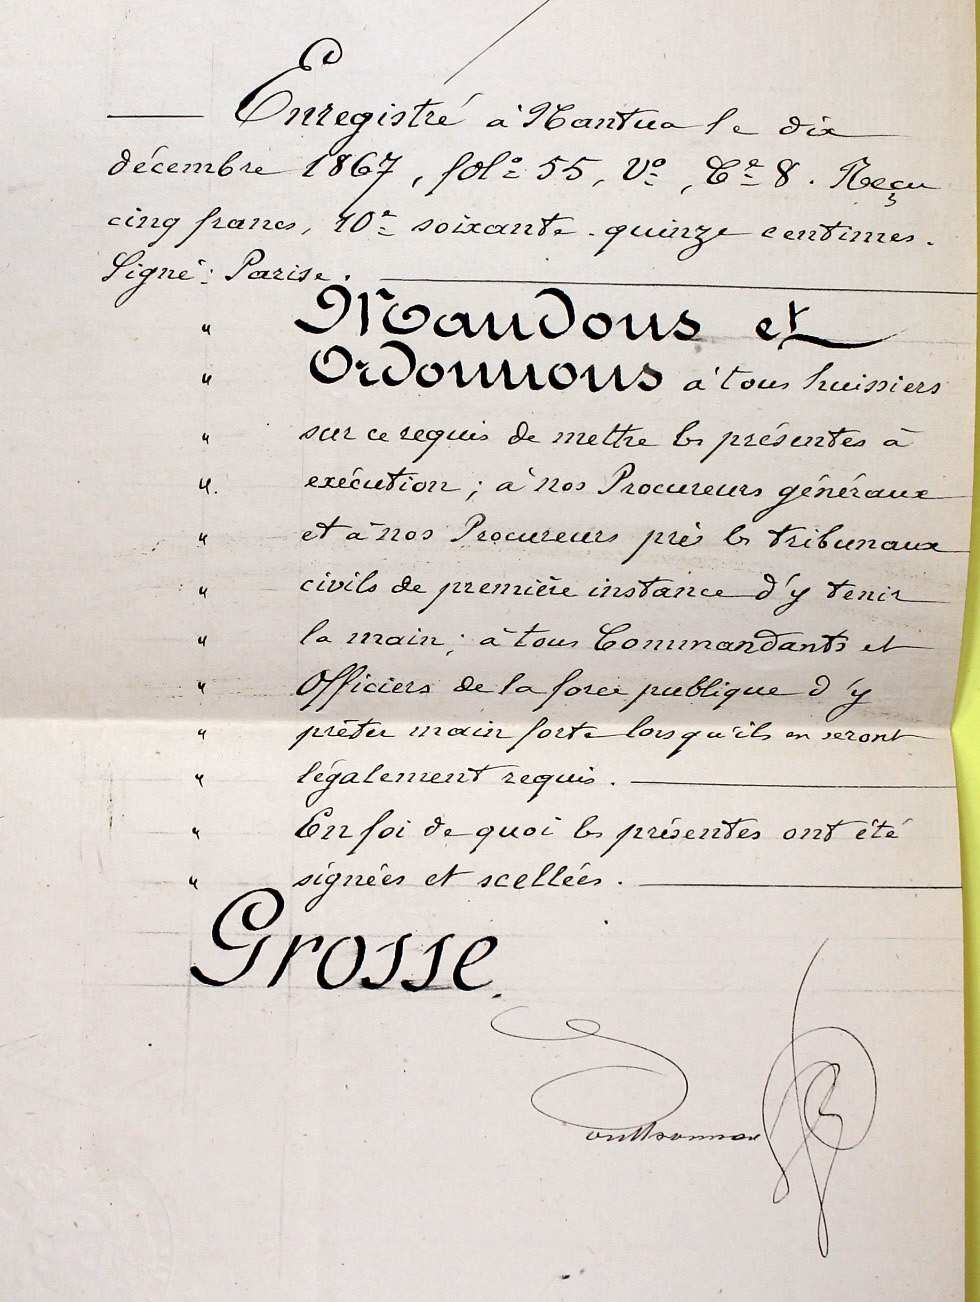 Enregistré à Nantua le dix
décembre 1867, fol.º 55, Vº, Cº 8. Reçu
cinq francs, 10ᵉ soixante-quinze centimes.
Signé: Parise.
" Mandons et
" Ordonnons à tous huissiers
" sur ce requis de mettre les présentes à
" exécution; à nos Procureurs généraux
" et à nos Procureurs près les tribunaux
" civils de première instance d'y tenir
" la main; à tous Commandants et
" Officiers de la force publique d'y
" prêter main forte lorsqu'ils en seront
" légalement requis.
" En foi de quoi les présentes ont été
" signées et scellées.
Grosse.